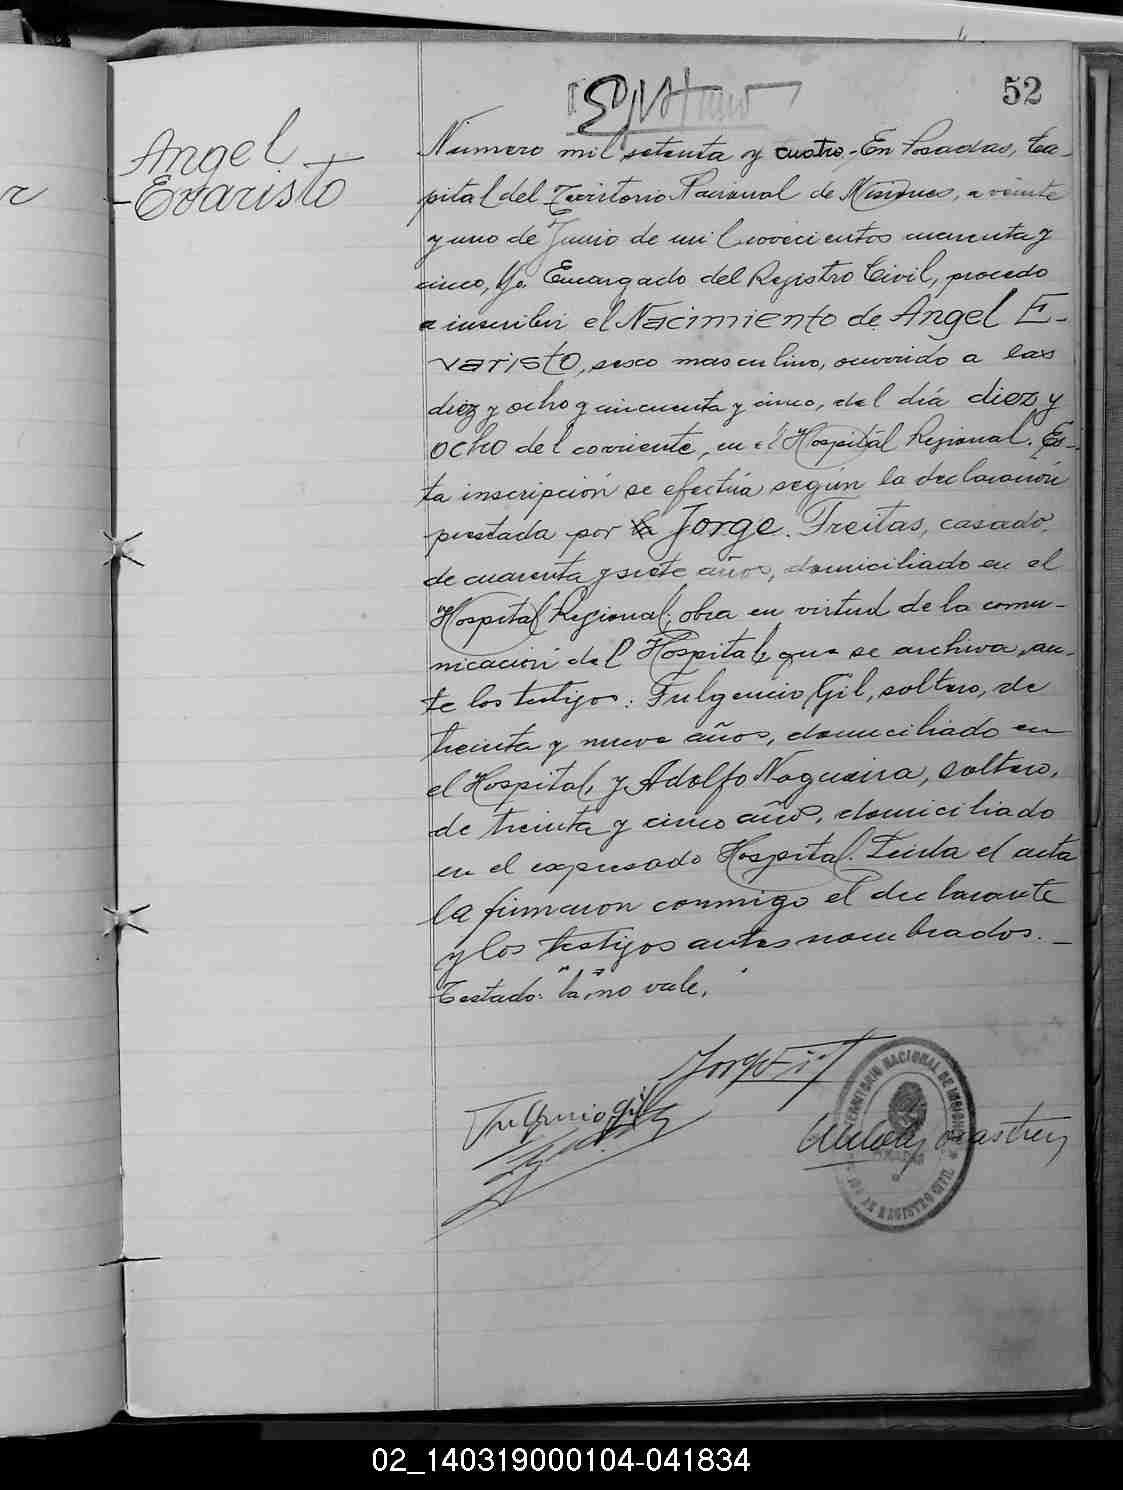 52
Angel
Evaristo
Numero mil setenta y cuatro - En Posadas, Ca-
pital del Territorio Nacional de Misiones, a veinte
y uno de Junio de mil novecientos cuarenta y
cinco, Yo. Encargado del Registro Civil, procedo
a inscribir el Nacimiento de Angel E-
varisto, sexo masculino, ocurrido a las
diez y ocho y cincuenta y cinco, del día diez y
ocho del corriente, en el Hospital Regional. Es-
ta inscripción se efectúa según la declaración
prestada por la Jorge. Freitas, casado,
de cuarenta y siete años, domiciliado en el
Hospital Regional; obra en virtud de la comu-
nicación del Hospital, que se archiva, an-
te los testigos: Fulgencio Gil, soltero, de
treinta y nueve años, domiciliado en
el Hospital, y Adolfo Nogueira, soltero,
de treinta y cinco años, domiciliado
en el expresado Hospital. Leida el acta
la firmaron conmigo el declarante
y los testigos antes nombrados. -
Testado: "la" no vale.
Fulgencio Gil
TERRITORIO NACIONAL DE MISIONES
POSADAS
REGISTRO CIVIL
02_140319000104-041834